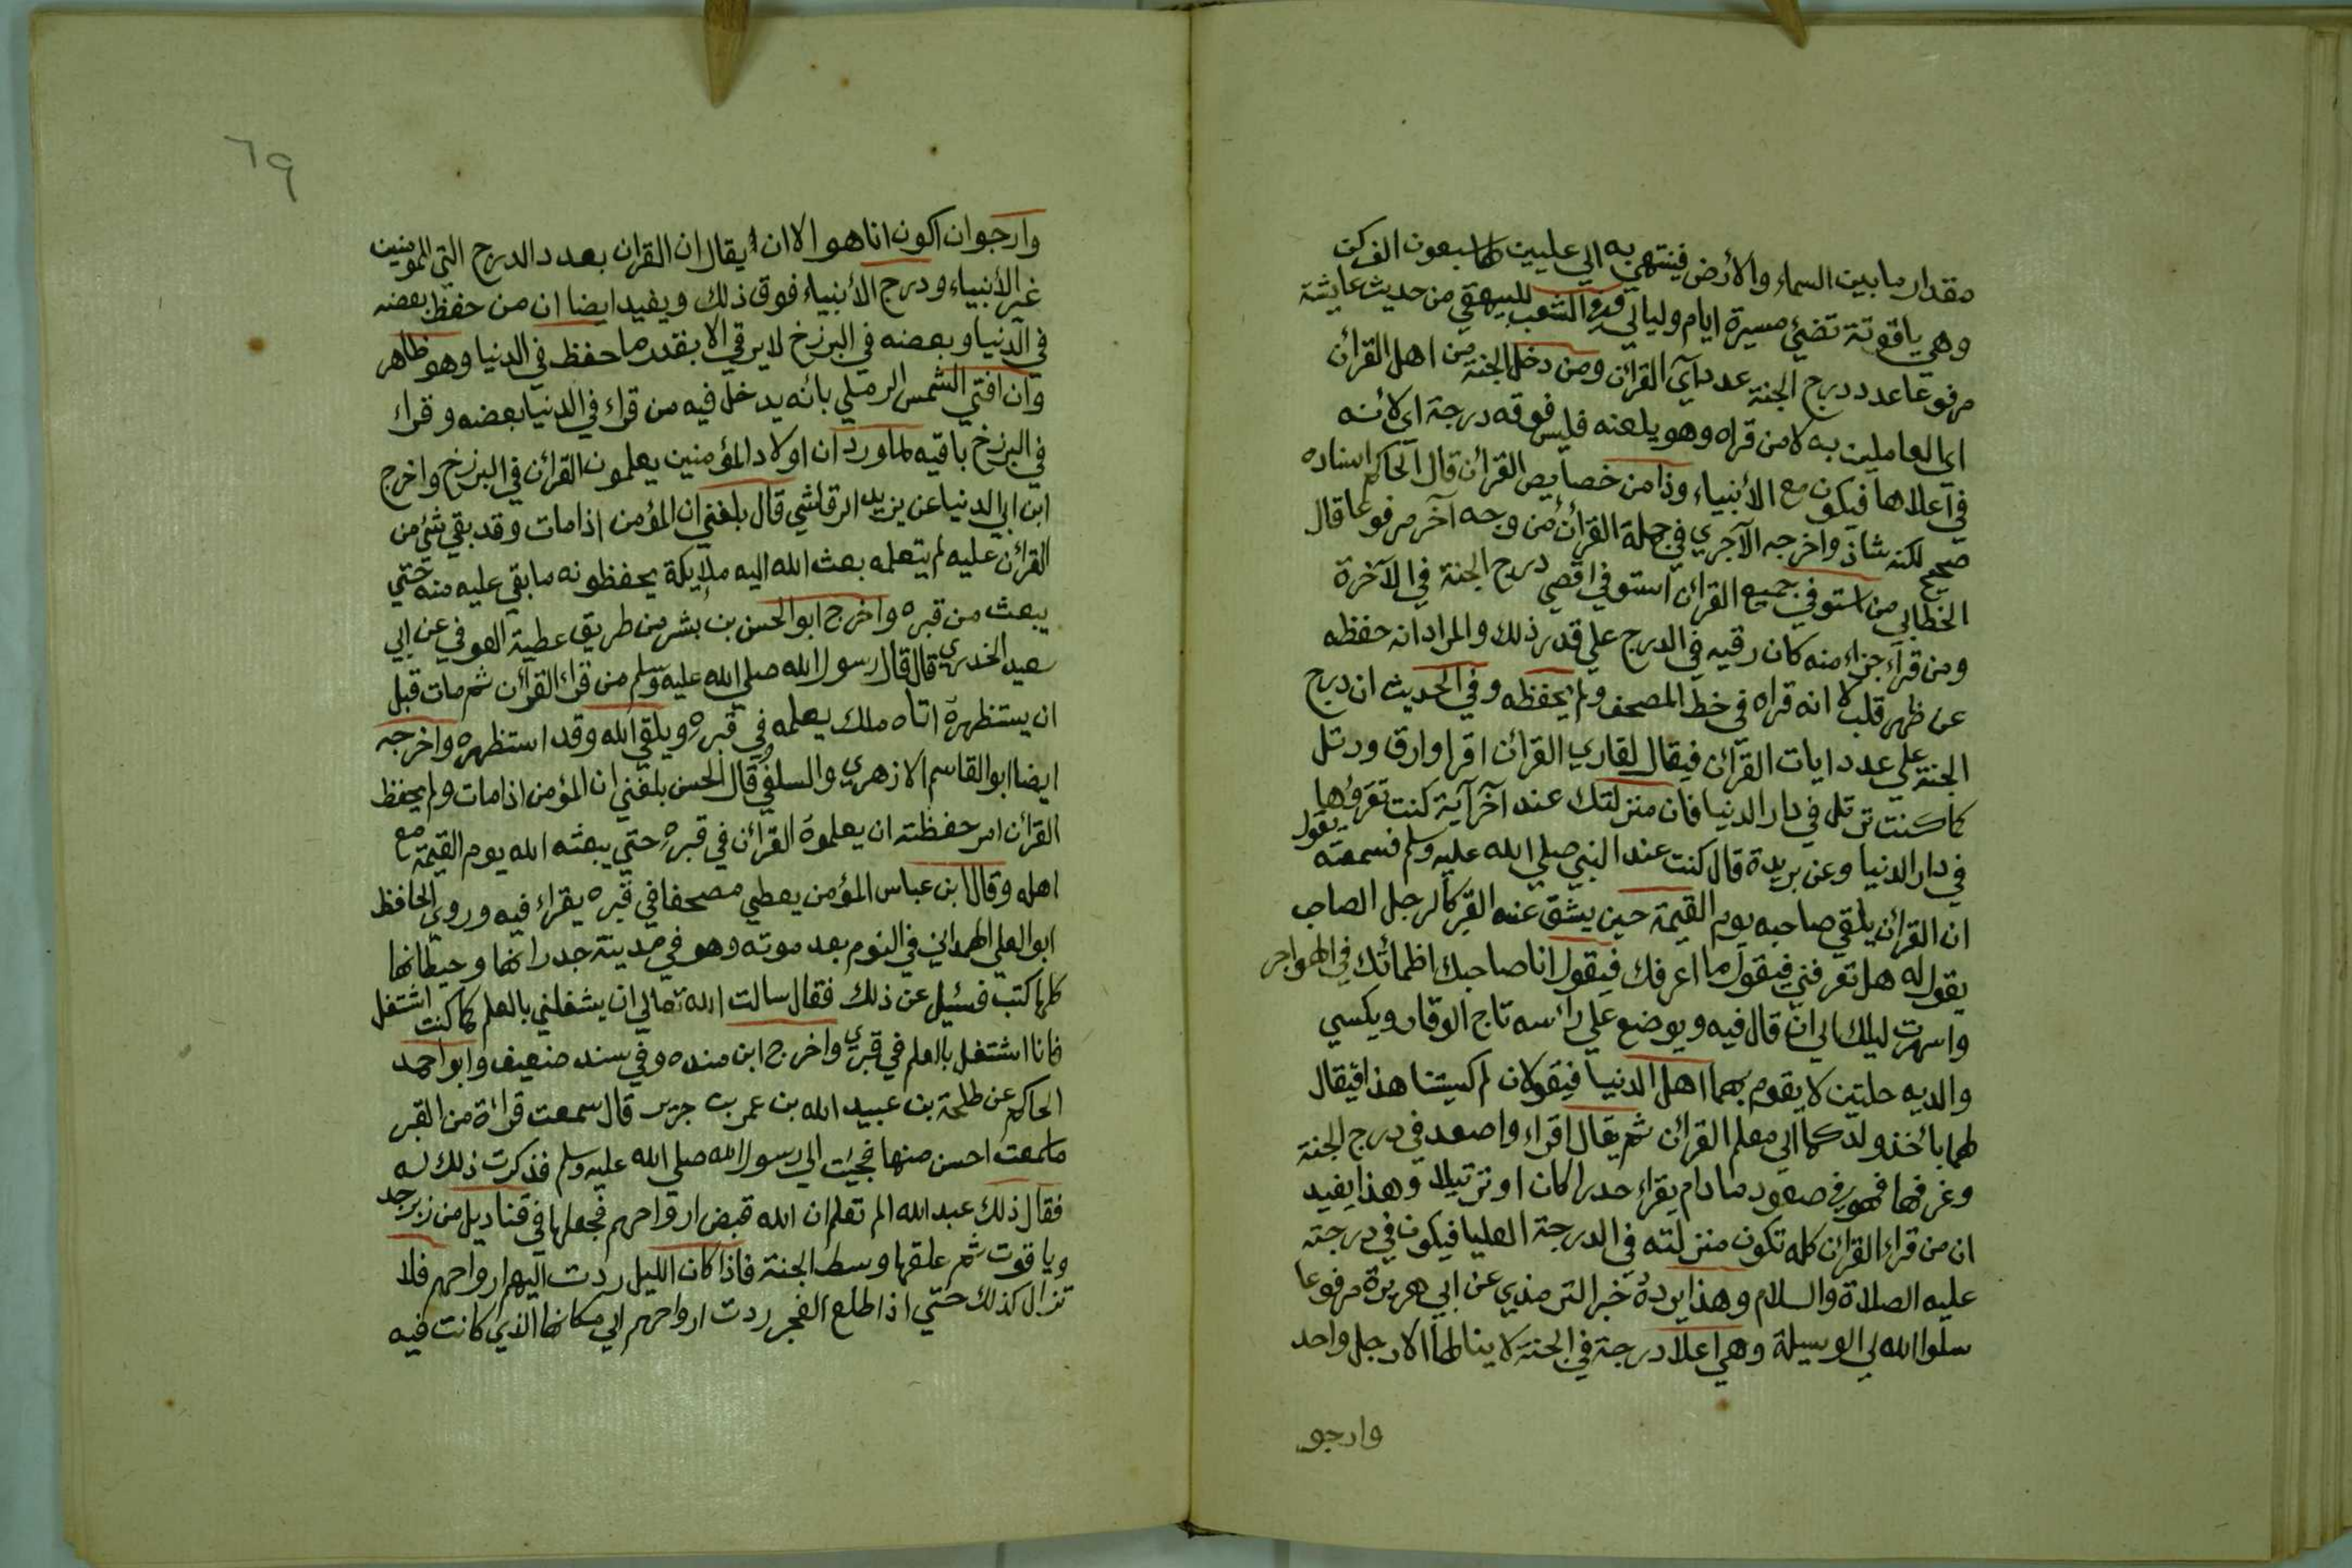 مقدار ما بين السماء والأرض فينتهي به الي عليين لها سبعون الف ركن
وهي ياقوتة تضئي مسيرة ايام وليالي وفي الشعب للبيهقي من حديث عايشة
مرفوعا عدد درج الجنة عدد آي القرآن ومن دخل الجنة من اهل القرآن
اي العاملين به لا من قراه وهو يلعنه فليس فوقه درجة اي لأنه
في أعلاها فيكون مع الأنبياء وذا من خصايص القرآن قال الحاكم اسناده
صحيح لكنه شاذ واخرجه الآجري في حملة القرآن من وجه آخر مرفوعا قال
الخطابي من استوفي جميع القرآن استوفي اقصي درج الجنة في الآخرة
ومن قرآ جزاء منه كان رقيه في الدرج علي قدر ذلك والمراد انه حفظه
عن ظهر قلب لا انه قراه في خط المصحف ولم يحفظه وفي الحديث ان درج
الجنة علي عدد ايات القرآن فيقال لقاري القرآن اقرا وارق ورتل
كما كنت ترتل في دار الدنيا فان منزلتك عند آخر آية كنت تقرؤها
في دار الدنيا وعن بريدة قال كنت عند النبي صلي الله عليه وسلم فسمعته يقول
ان القرآن يلقي صاحبه يوم القيمة حين يشق عنه القبر كالرجل الصاحب
يقول له هل تعرفني فيقول ما اعرفك فيقول انا صاحبك اظمائتك في الهواجر
واسهرت ليلك الي ان قال فيه ويوضع علي رأسه تاج الوقار ويكسي
والديه حلتين لا يقوم بهما اهل الدنيا فيقولان لم كسيتنا هذا فيقال
لهما بأخذ ولدكما الي معلم القرآن ثم يقال اقراء واصعد في درج الجنة
وغرفها فهو في صعود ما دام يقراء حدرا كان او ترتيلا وهذا يفيد
ان من قراء القرآن كله تكون منزلته في الدرجة العليا فيكون في درجته
عليه الصلاة والسلام وهذا يرده خبر الترمذي عن ابي هريرة مرفوعا
سلوا الله لي الوسيلة وهي اعلا درجة في الجنة لا ينالها الا رجل واحد
وارجو
٦٩
وارجوان اكون انا هو الا ان يقال ان القران بعدد الدرج التي للمومنين
غير الأنبياء ودرج الأنبياء فوق ذلك ويفيد ايضا ان من حفظ بعضه
في الدنيا وبعضه في البرزخ لا يرقي الا بقدر ما حفظ في الدنيا وهو ظاهر
وان افتي الشمس الرملي بانه يدخل فيه من قراء في الدنيا بعضه وقراء
في البرزخ باقيه لما ورد ان اولاد المؤمنين يعلمون القرآن في البرزخ واخرج
ابن ابي الدنيا عن يزيد الرقاشي قال بلغني ان المؤمن اذا مات وقد بقي شئ من
القرآن عليه لم يتعلمه بعث الله اليه ملايكة يحفظونه ما بقي عليه منه حتي
يبعث من قبره واخرج ابو الحسن بن بشر من طريق عطية العوفي عن ابي
سعيد الخدري قال قال رسول الله صلي الله عليه وسلم من قراء القرآن ثم مات قبل
ان يستظهره اتاه ملك يعلمه في قبره ويلقي الله وقد استظهره واخرجه
ايضا ابو القاسم الازهري والسلفي قال الحسن بلغني ان المؤمن اذا مات ولم يحفظ
القرآن امر حفظته ان يعلموه القرآن في قبره حتي يبعثه الله يوم القيمة مع
اهله وقال ابن عباس المؤمن يعطي مصحفا في قبره يقراء فيه وروي الحافظ
ابو العلي الهمداني في النوم بعد موته وهو في مدينة جدرانها وحيطانها
كلها كتب فسئيل عن ذلك فقال سالت الله تعالي ان يشغلني بالعلم كما كنت اشتغل
فانا اشتغل بالعلم في قبري واخرج ابن منده وفي سند ضعيف وابو احمد
الحاكم عن طلحة بن عبيد الله بن عمر بن جرير قال سمعت قرأة من القبر
ما سمعت احسن منها فجيت الي رسول الله صلي الله عليه وسلم فذكرت ذلك له
فقال ذلك عبد الله الم تعلم ان الله قبض ارواحهم فجعلها في قناديل من زبرجد
وياقوت ثم علقها وسط الجنة فاذا كان الليل ردت اليهم ارواحهم فلا
تزال كذلك حتي اذا طلع الفجر ردت ارواحهم الي مكانها الذي كانت فيه